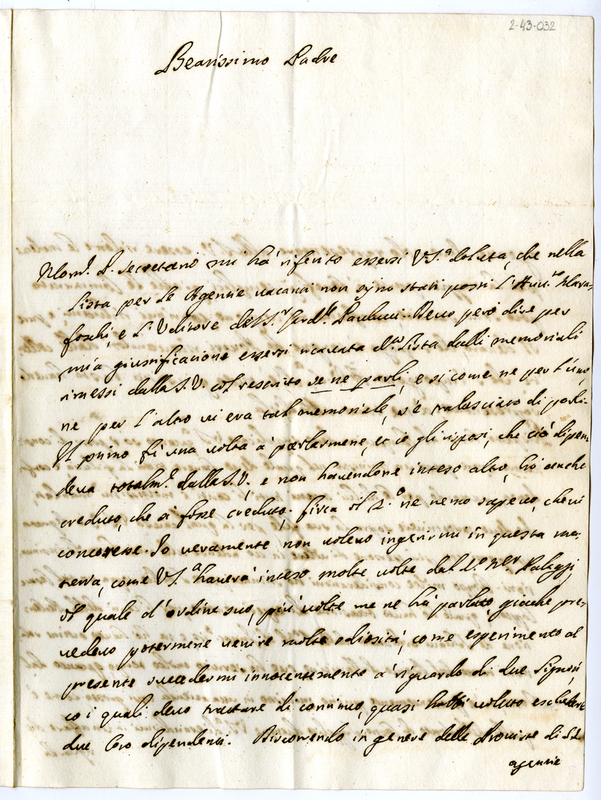 2-43-032
Beatissimo Padre
Mons.r S. Secretario mi hà riferito essersi V.S.tà doluta, che nella
lista per le Agenzie vacanti non sijno stati posti l'Avv.to Mara-
foschi, e l'Uditore del S.r Card.le Paulucci. Devo però dire per
mia giustificazione essersi ricavata d.a lista dalli memoriali
rimessi dalla S.V. col rescritto se ne parli, e si come ne per l'uno,
ne per l'altro vi era tal memoriale, s'è tralasciato di porli.
Il primo fù una volta à parlarmene, et io gli risposi, che ciò dipen-
deva totalm.te dalla S.V., e non havendone inteso altro, hò anche
creduto, che si fosse creduto; circa il 2.o ne meno sapevo, che vi
concoresse. Io veramente non volevo ingerirmi in questa ma-
teria, come V.S.tà haverà inteso molte volte dal
il quale d'ordine suo, più volte me ne hà parlato, gioche pre-
vedevo potermene venire molte odiosità, come esperimento al
presente succedermi innocentemente à riguardo di due Signori,
co i quali devo trattare di continuo, quasi habbi voluto escludere
due loro dipendenti. Discorrendo in genere delle Provviste di d.e
agenzie